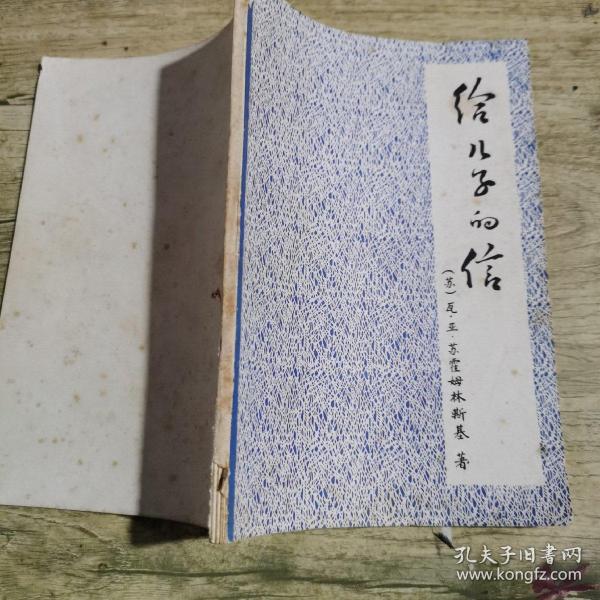 给儿子的信
(苏)瓦·亚·苏霍姆林斯基 著
孔夫子旧书网
www.kongfz.com